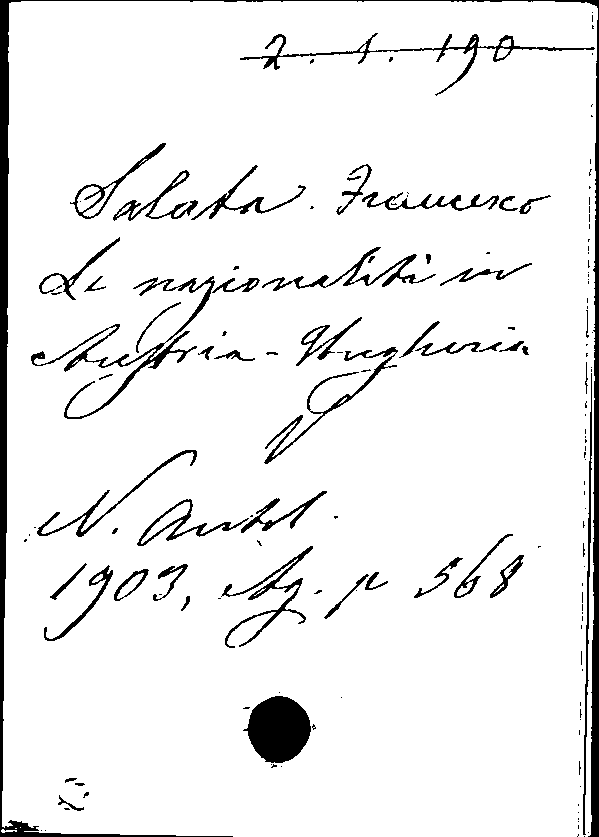 2. 1. 190
Salata. Francesco
Le nazionalità in
Austria - Ungheria
V
N. Antol.
1903, Ag. p 568